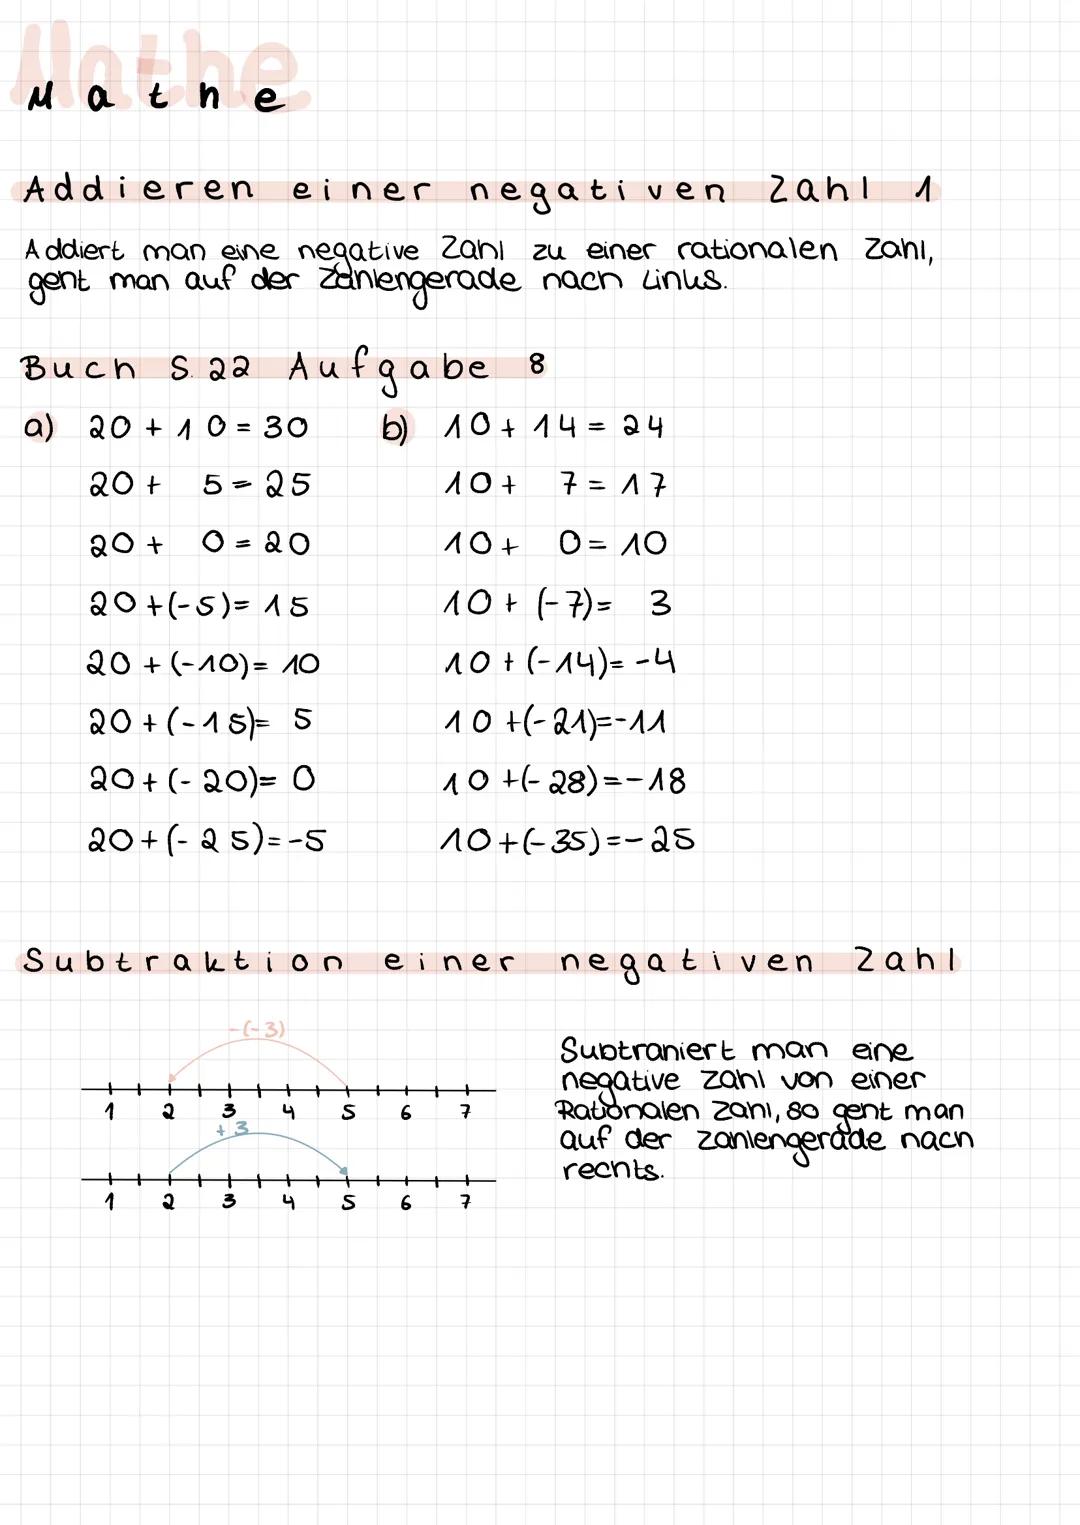 Mathe
Mathe
Addieren einer negativen Zahl 1
Addiert man eine negative Zahl zu einer rationalen Zahl,
geht man auf der Zahlengerade nach Links.
Buch S. 22 Aufgabe 8
a) 20 + 10 = 30 b) 10 + 14 = 24
20 + 5 = 25 10 + 7 = 17
20 + 0 = 20 10 + 0 = 10
20 + (-5) = 15 10 + (-7) = 3
20 + (-10) = 10 10 + (-14) = -4
20 + (-15) = 5 10 + (-21) = -11
20 + (-20) = 0 10 + (-28) = -18
20 + (-25) = -5 10 + (-35) = -25
Subtraktion einer negativen Zahl
-(-3)
1 2 3 4 5 6 7
+3
1 2 3 4 5 6 7
Subtrahiert man eine
negative Zahl von einer
Rationalen Zahl, so geht man
auf der Zahlengerade nach
rechts.